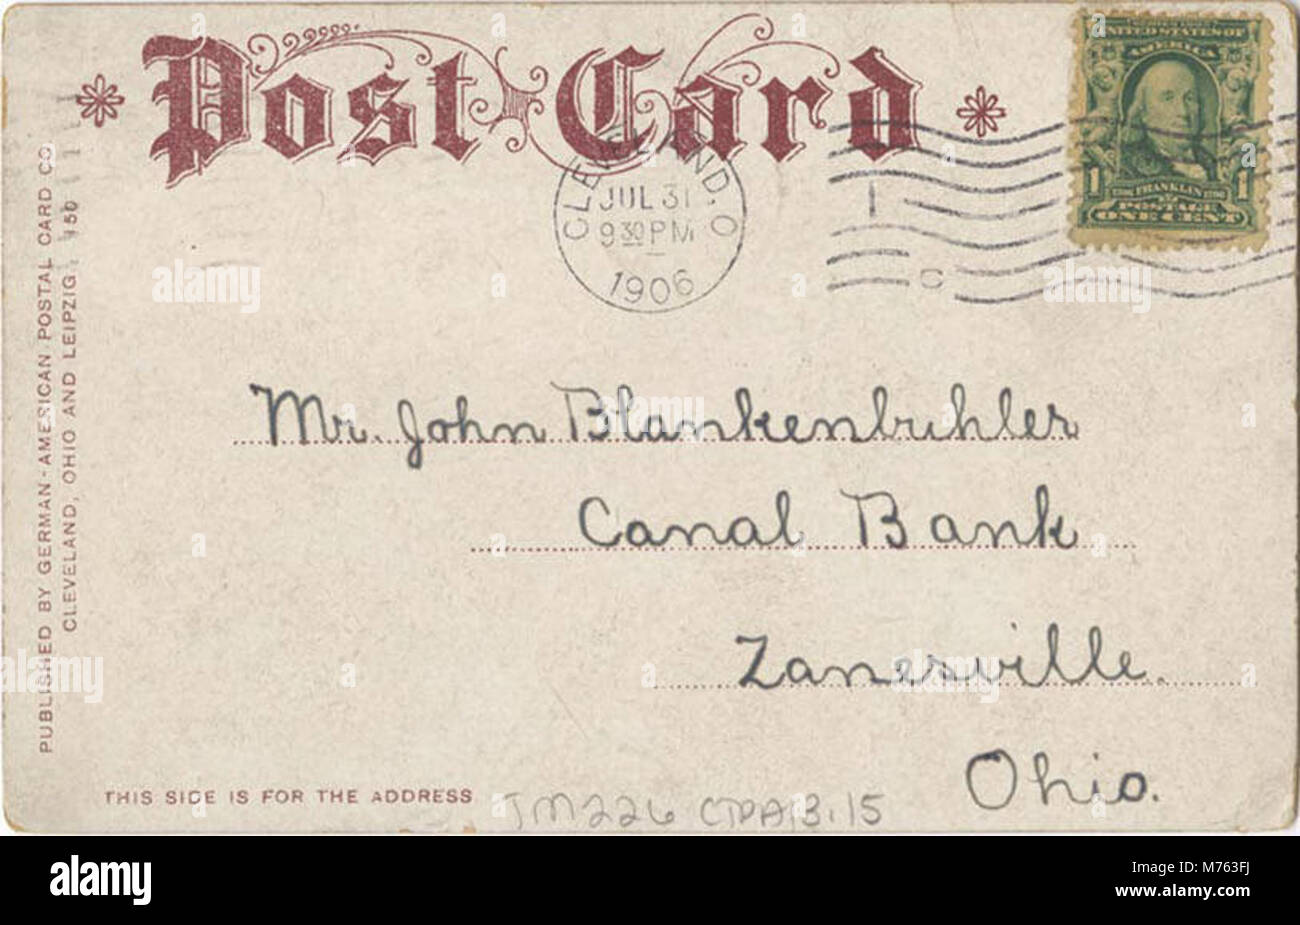 Post Card
UNITED STATES OF
AMERICA
1 FRANKLIN 1
POSTAGE
ONE CENT
CLEVELAND, O.
JUL 31
9 30 PM
1906
C
PUBLISHED BY GERMAN-AMERICAN POSTAL CARD CO.
CLEVELAND, OHIO AND LEIPZIG 150
Mr. John Blankenbuhler
Canal Bank
Zanesville.
Ohio.
THIS SIDE IS FOR THE ADDRESS
alamy
alamy stock photo
M763FJ
www.alamy.com